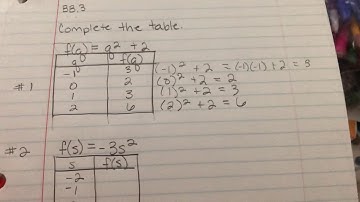 BB.3
Complete the table.
f(g) = g² + 2
g f(g)
#1 -1 3 (-1)² + 2 = (-1)(-1) + 2 = 3
0 2 (0)² + 2 = 2
1 3 (1)² + 2 = 3
2 6 (2)² + 2 = 6
#2 f(s) = -3s²
s f(s)
-2
-1